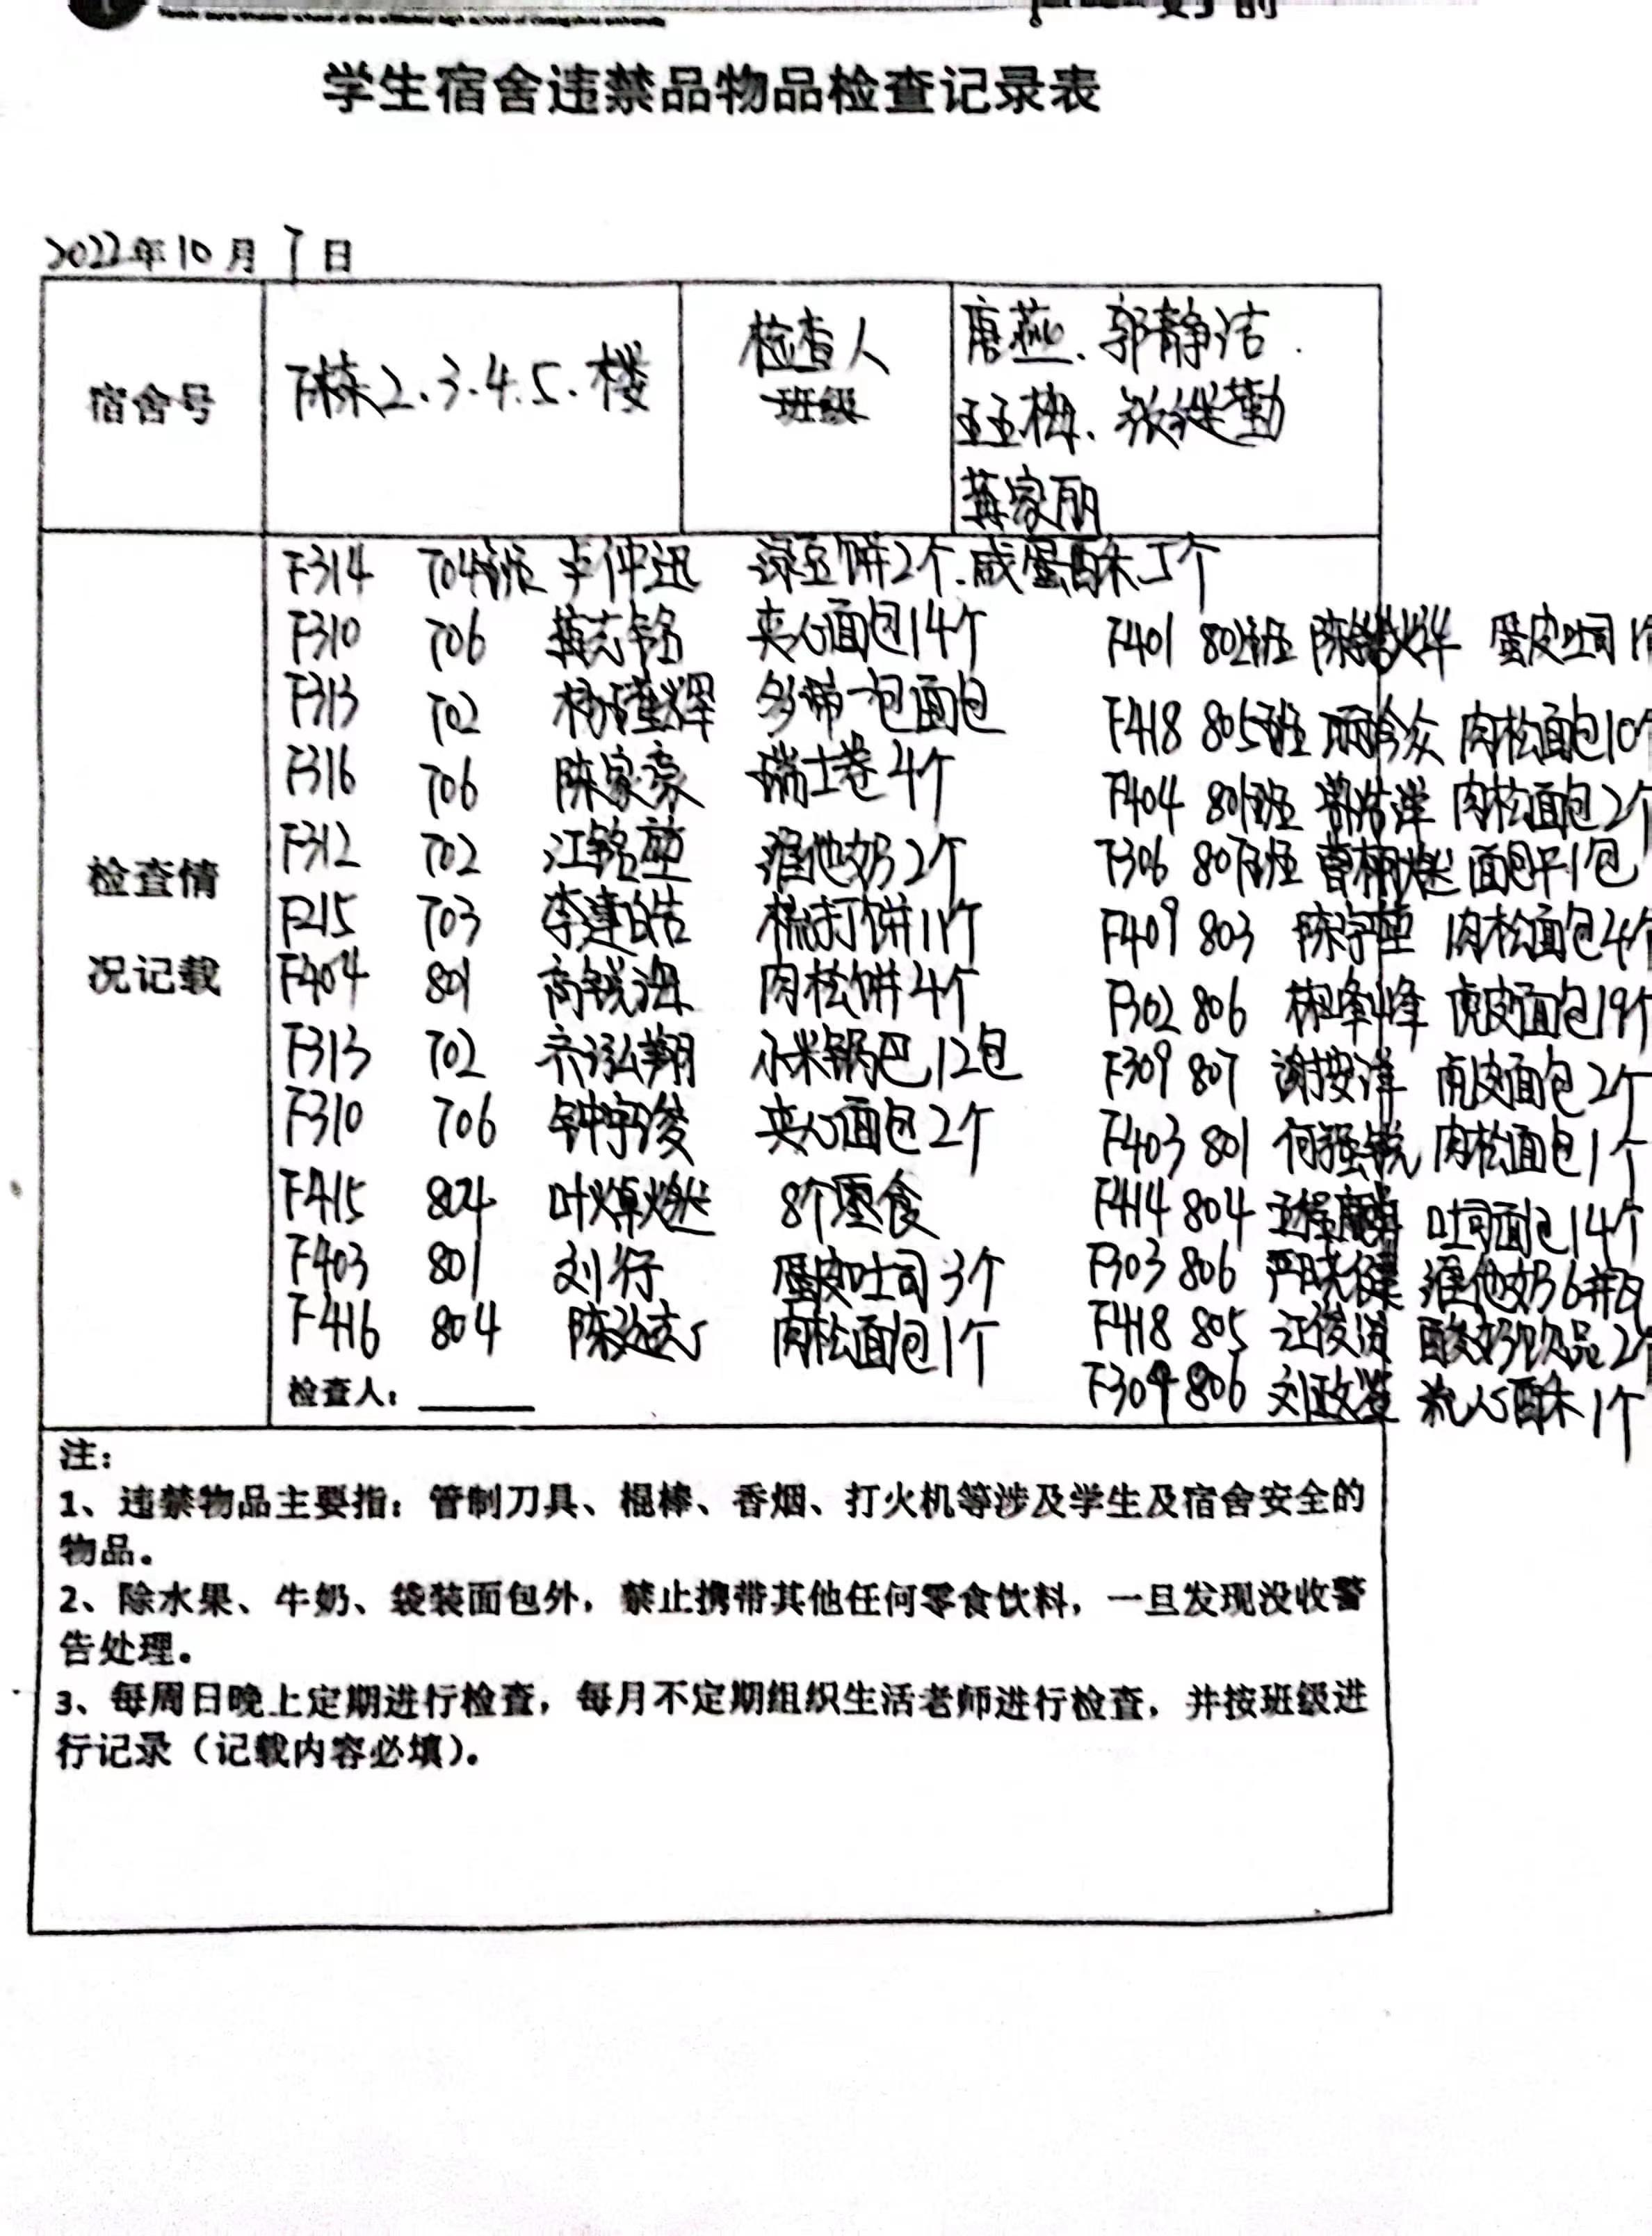 学生宿舍违禁品物品检查记录表
2022年10月7日
宿舍号
F栋2.3.4.5.楼
检查人
班级
唐燕、郭静洁.
王玉梅、张继勤
蒋家丽
检查情
况记载
F314 704班 李仲迅 绿豆饼2个.咸蛋酥5个
F310 706 蒋志铭 夹心面包14个
F313 702 杨瑾辉 多带一包面包
F316 706 陈家豪 瑞士卷4个
F312 702 江铭堃 维他奶2个
F215 703 李建皓 梳打饼11个
F404 801 高锐海 肉松饼4个
F313 702 齐泓翔 小米锅巴12包
F310 706 钟宇俊 夹心面包2个
F415 804 叶焯燃 8个零食
F403 801 刘行 蛋皮吐司3个
F416 804 陈 肉松面包1个
检查人：
F401 802班 陈 烨 蛋皮吐司1个
F418 805班 肉松面包10个
F404 801班 洋 肉松面包2个
F306 807班 曹 燃 面包干1包
F409 803 陈宇堃 肉松面包4个
F302 806 林峰峰 虎皮面包19个
F309 807 谢按洋 虎皮面包2个
F403 801 何强锐 肉松面包1个
F414 804 王 吐司面包14个
F303 806 严 健 维他奶6瓶
F418 805 江俊 酸奶饮品2个
F304 806 刘政 流心酥1个
注：
1、违禁物品主要指：管制刀具、棍棒、香烟、打火机等涉及学生及宿舍安全的
物品。
2、除水果、牛奶、袋装面包外，禁止携带其他任何零食饮料，一旦发现没收警
告处理。
3、每周日晚上定期进行检查，每月不定期组织生活老师进行检查，并按班级进
行记录（记载内容必填）。